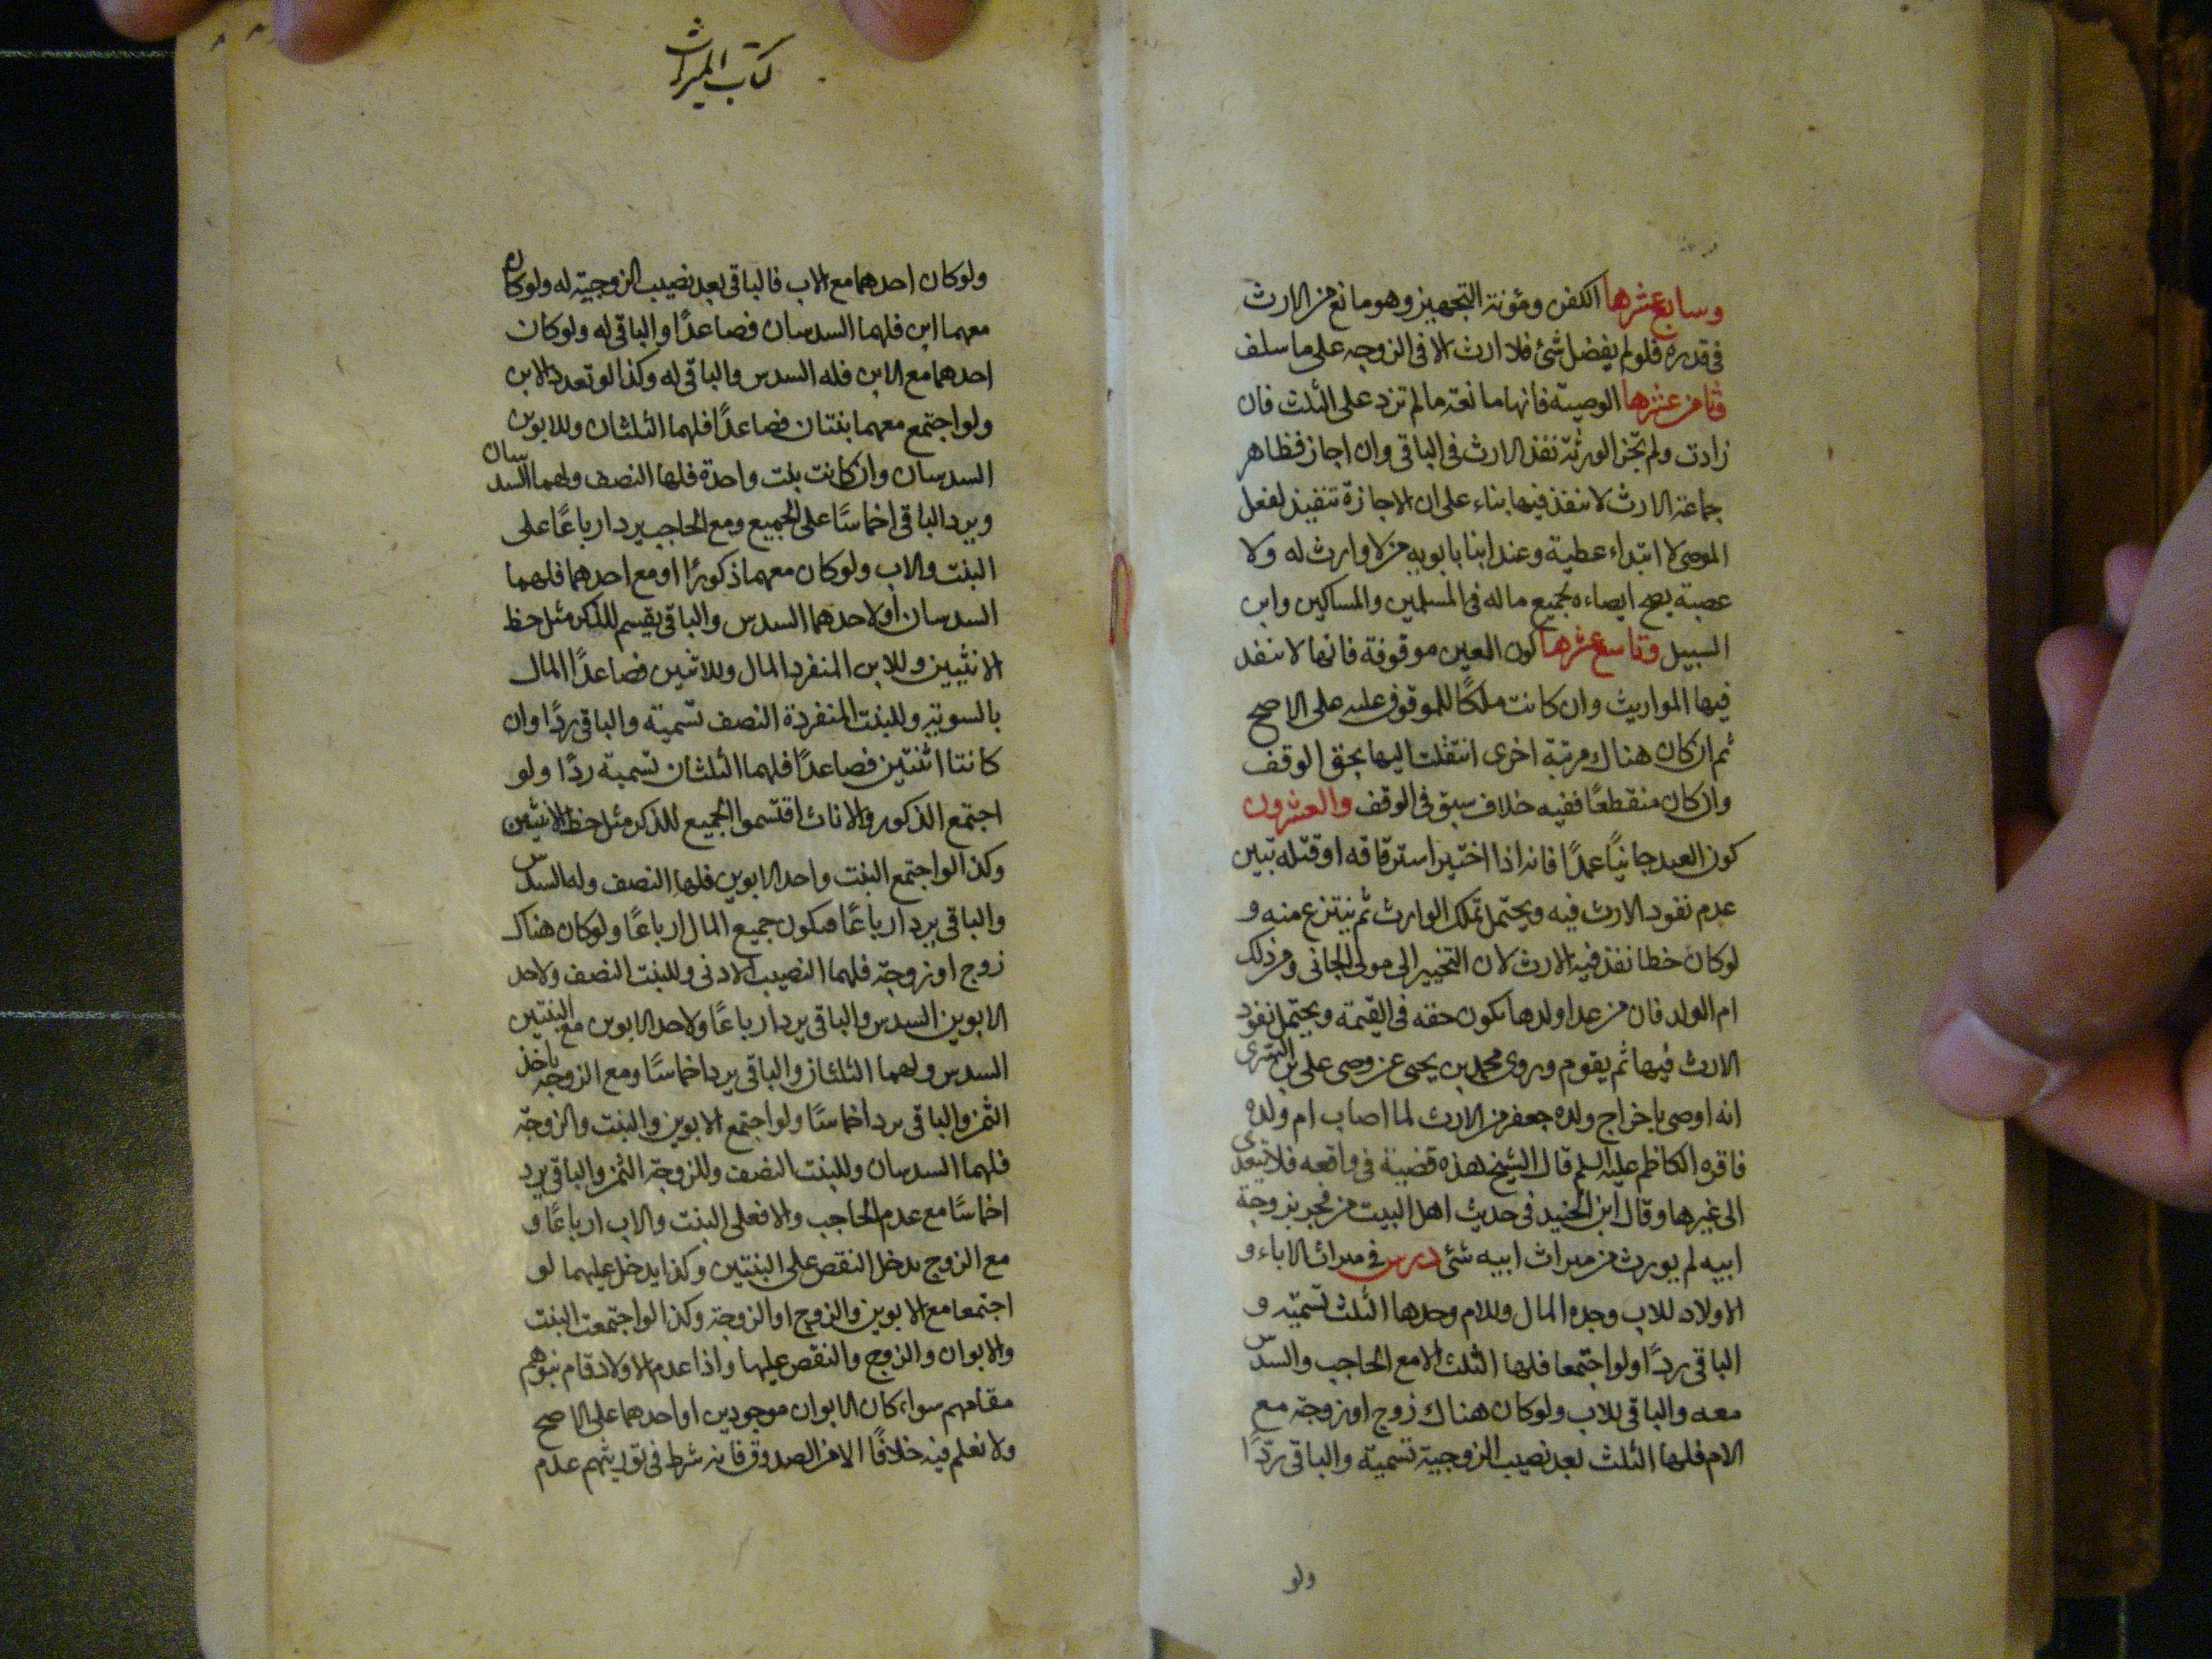 وسابع عشرها الكفن ومؤنة التجهيز وهو مانع من الارث
فى قدره فلو لم يفضل شئ فلا ارث الا فى الزوجه على ما سلف
وثامن عشرها الوصية فانها مانعة ما لم تزد على الثلث فان
زادت ولم تجز الورثة نفذ الارث فى الباقى وان اجاز فظاهر
جماعة الارث لا ينفذ فيها بناء على ان الاجازة تنفيذ لفعل
الموصى لا ابتداء عطية وعند ابنا بابويه من لا وارث له ولا
عصبة يصح ايصاءه بجميع ماله فى المسلمين والمساكين وابن
السبيل وتاسع عشرها كون العين موقوفة فانها لا تنفد
فيها المواريث وان كانت ملكًا للموقوف عليه على الاصح
ثم ان كان هناك مرتبة اخرى انتقلت اليها بحق الوقف
وان كان منقطعًا ففيه خلاف سبق فى الوقف والعشرون
كون العبد جانيًا عمدًا فانه اذا اختير استرقاقه او قتله تبين
عدم نفود الارث فيه ويحتمل تملك الوارث ثم ينتزع منه و
لو كان خطا نفذ فيه الارث لان التخيير الى مولى الجانى ومن ذلك
ام الولد فان من عدا ولدها يكون حقه فى القيمة ويحتمل نفود
الارث فيها ثم يقوم وروى محمد بن يحيى عن وصى على بن السرى
انه اوصى باخراج ولده جعفر من الارث لما اصاب ام ولده
فاقره الكاظم عليه السلم قال الشيخ هذه قضية فى واقعه فلا يتعدى
الى غيرها وقال ابن الجنيد فى حديث اهل البيت من فجر بزوجة
ابيه لم يورث من ميراث ابيه شئ درس فى ميراث الاباء و
الاولاد للاب وحده المال وللام وحدها الثلث تسمية و
الباقى ردًا ولو اجتمعا فلها الثلث الا مع الحاجب والسدس
معه والباقى للاب ولو كان هناك زوج او زوجة مع
الام فلها الثلث بعد نصيب الزوجية تسمية والباقى ردًا
ولو
كتاب الميراث
ولو كان احدهما مع الاب فالباقى بعد نصيب الزوجية له ولو كان
معهما ابن فلهما السدسان فصاعدًا والباقى له ولو كان
احدهما مع الابن فله السدس والباقى له وكذا لو تعدد الابن
ولو اجتمع معهما بنتان فصاعدًا فلهما الثلثان وللابوين
السدسان وان كانت بنت واحدة فلها النصف ولهما السدسان
ويرد الباقى اخماسًا على الجميع ومع الحاجب يرد ارباعًا على
البنت والاب ولو كان معهما ذكورًا او مع احدهما فلهما
السدسان او لاحدهما السدس والباقى يقسم للذكر مثل حظ
الانثيين وللابن المنفرد المال وللاثنين فصاعدًا المال
بالسوية وللبنت المنفردة النصف تسمية والباقى ردًا وان
كانتا اثنتين فصاعدًا فلهما الثلثان تسمية ردًا ولو
اجتمع الذكور والاناث اقتسموا الجميع للذكر مثل حظ الانثيين
وكذا لو اجتمع البنت واحد الابوين فلها النصف وله السدس
والباقى يرد ارباعًا فيكون جميع المال ارباعًا ولو كان هناك
زوج او زوجة فلهما النصيب الادنى وللبنت النصف ولاحد
الابوين السدس والباقى يرد ارباعًا ولاحد الابوين مع البنتين
السدس ولهما الثلثان والباقى يرد اخماسًا ومع الزوجة ياخذ
الثمن والباقى يرد اخماسًا ولو اجتمع الابوين والبنت والزوجة
فلهما السدسان وللبنت النصف وللزوجة الثمن والباقى يرد
اخماسًا مع عدم الحاجب والا فعلى البنت والاب ارباعًا و
مع الزوج يدخل النقص على البنتين وكذا يدخل عليهما لو
اجتمعا مع الابوين والزوج او الزوجة وكذا لو اجتمعت البنت
والابوان والزوج والنقص عليها واذا عدم الاولاد قام بنوهم
مقامهم سواء كان الابوان موجودين او احدهما على الاصح
ولا نعلم فيه خلافًا الا من الصدوق فانه شرط فى توريثهم عدم